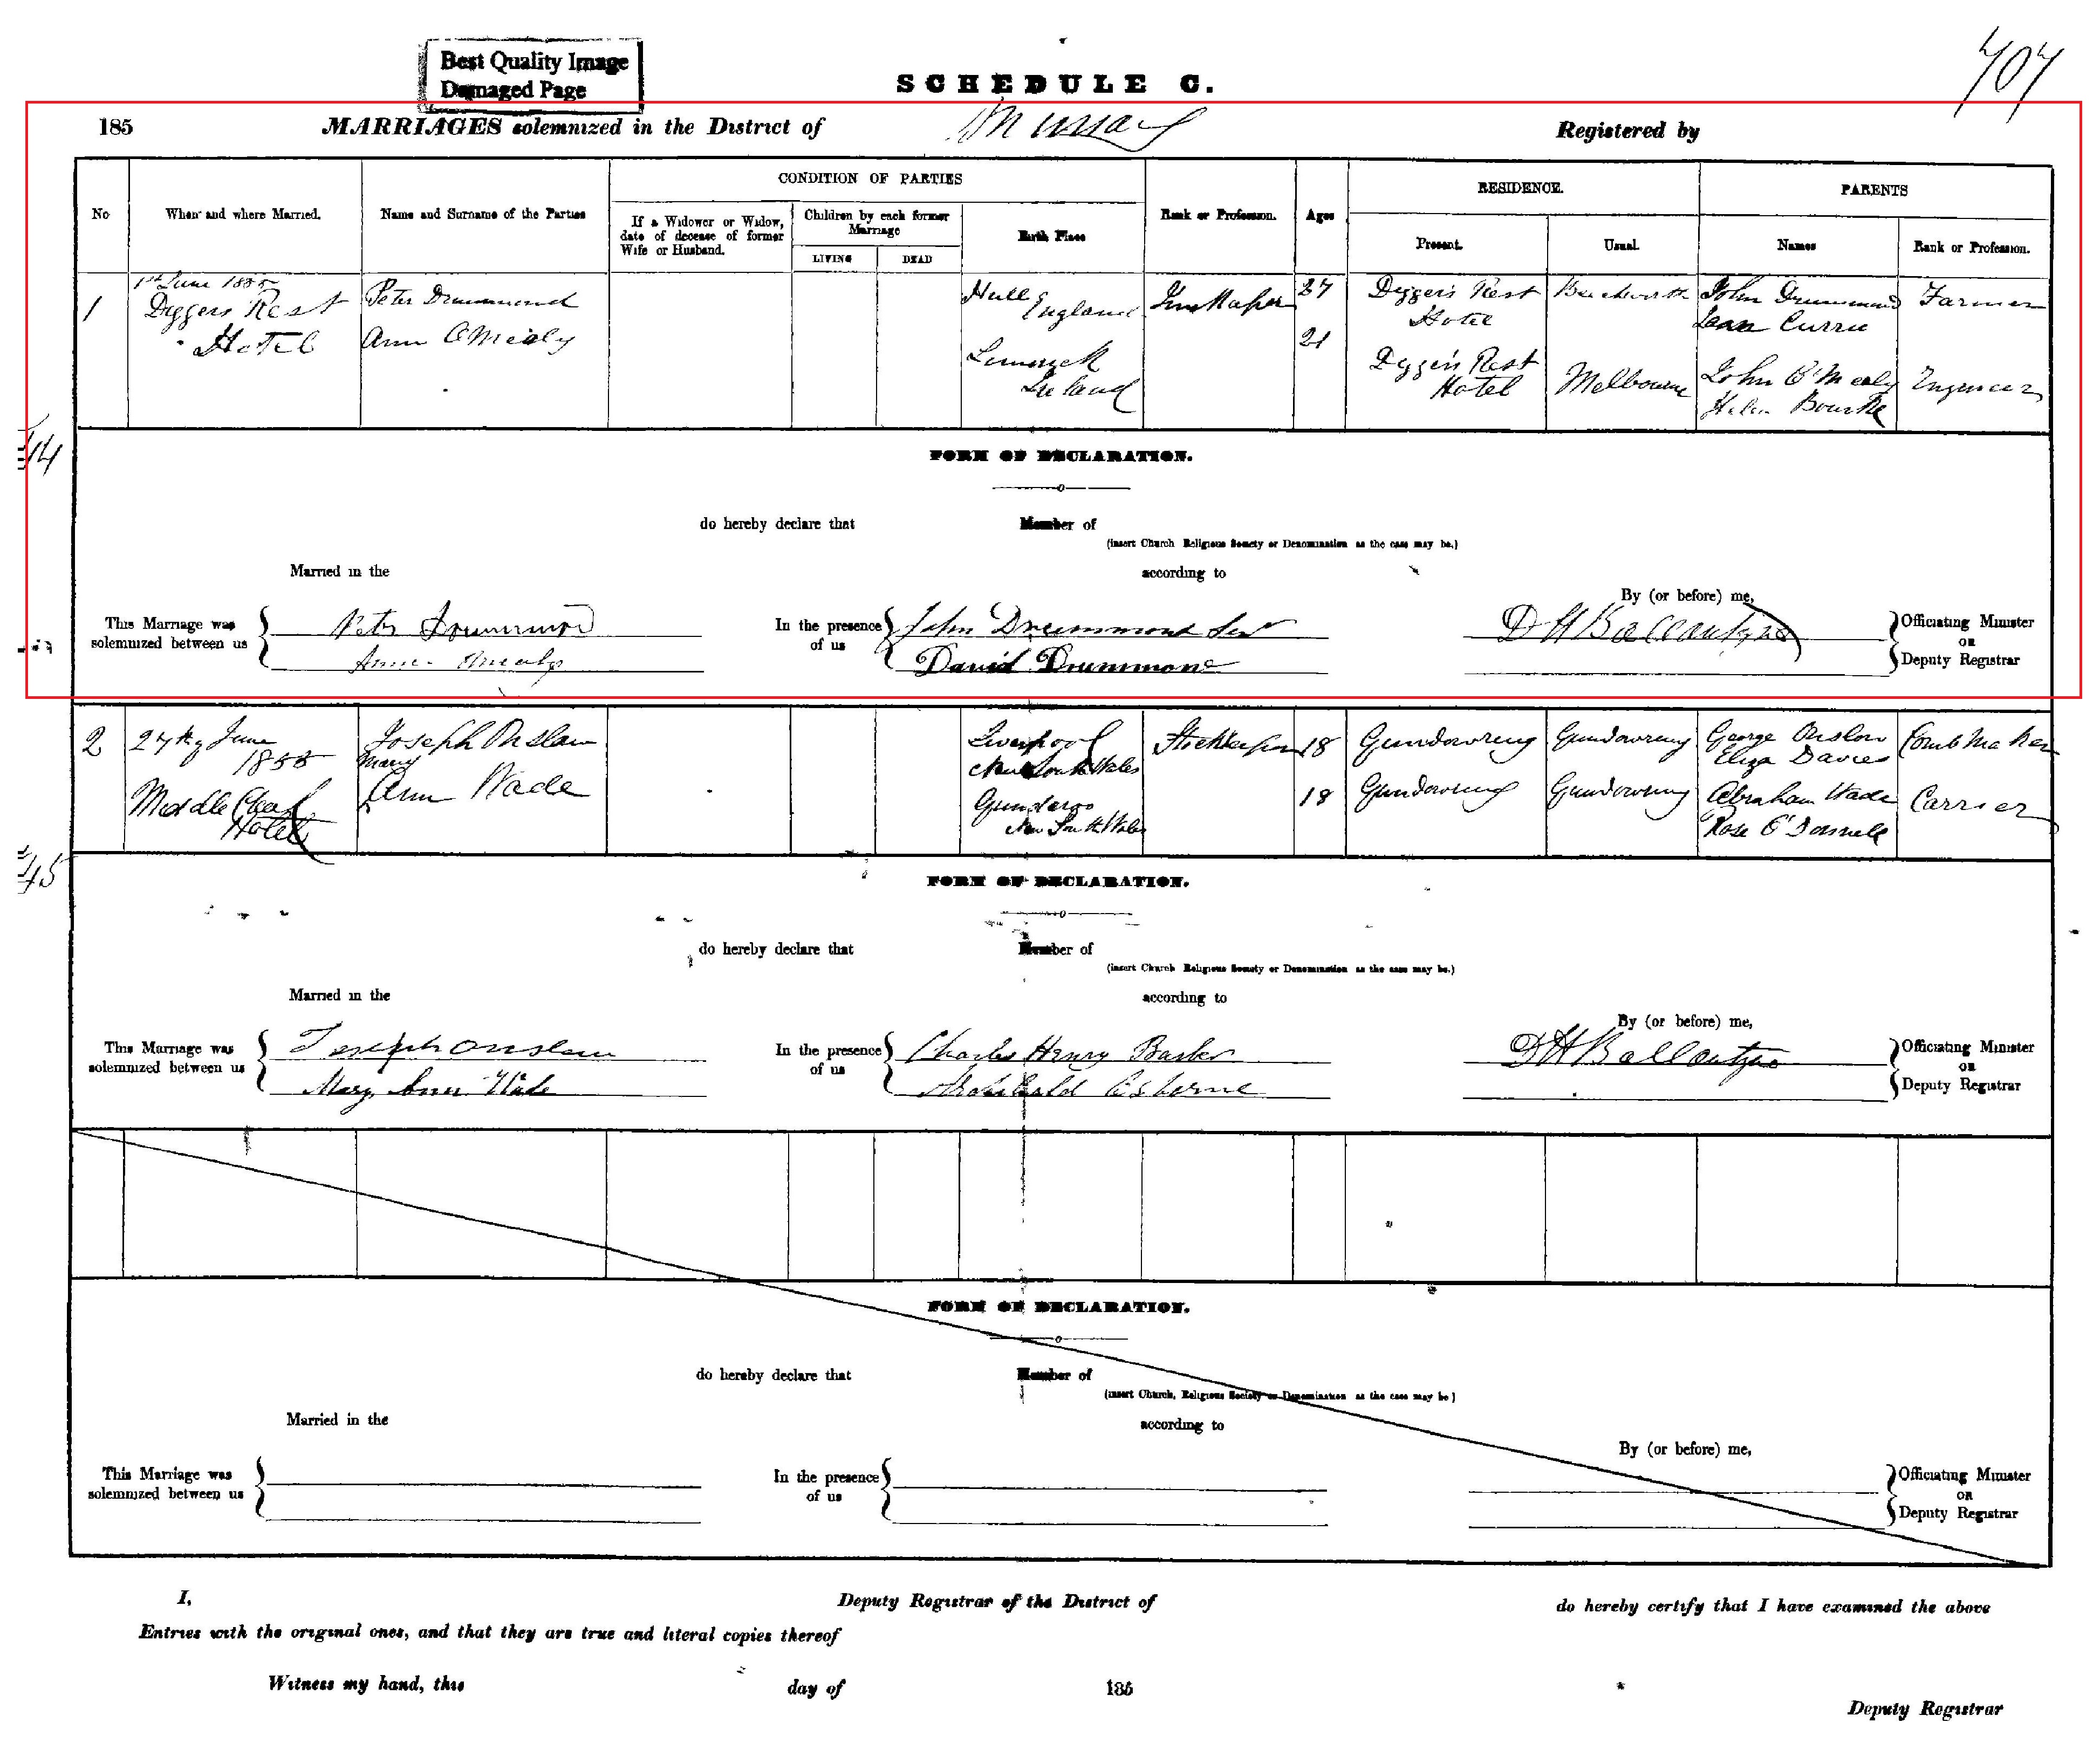 Best Quality Image
Damaged Page
SCHEDULE C.
707
185 MARRIAGES solemnized in the District of Murray Registered by
No
When and where Married.
Name and Surname of the Parties
CONDITION OF PARTIES
If a Widower or Widow,
date of decease of former
Wife or Husband.
Children by each former
Marriage
LIVING
DEAD
Birth Place
Rank or Profession.
Ages
RESIDENCE.
Present.
Usual.
PARENTS
Names
Rank or Profession.
1
1st June 1855
Diggers Rest
Hotel
Peter Drummond
Ann O'Mealy
Hull
England
Limerick
Ireland
InnKeeper
27
21
Digger's Rest
Hotel
Digger's Rest
Hotel
Beechworth
Melbourne
John Drummond
Jean Currie
John O'Mealy
Helen Bourke
Farmer
Engineer
FORM OF DECLARATION.
do hereby declare that Member of
(insert Church Religious Society or Denomination as the case may be.)
Married in the according to
By (or before) me,
This Marriage was
solemnized between us
Peter Drummond
Anne Omealy
In the presence
of us
John Drummond Senr
David Drummond
D H Ballantyne
Officiating Minister
OR
Deputy Registrar
2
27th of June
1855
Middle Creek
Hotel
Joseph Onslow
Mary
Ann Wade
Liverpool
New South Wales
Gundaroo
New South Wales
Stockkeeper
18
18
Gundowring
Gundowring
Gundowring
Gundowring
George Onslow
Eliza Davies
Abraham Wade
Rose O'Donnell
Comb Maker
Carrier
FORM OF DECLARATION.
do hereby declare that Member of
(insert Church Religious Society or Denomination as the case may be.)
Married in the according to
By (or before) me,
This Marriage was
solemnized between us
Joseph Onslow
Mary Ann Wade
In the presence
of us
Charles Henry Barker
Archibald Osborne
D H Ballantyne
Officiating Minister
OR
Deputy Registrar
FORM OF DECLARATION.
do hereby declare that Member of
(insert Church, Religious Society or Denomination as the case may be)
Married in the according to
By (or before) me,
This Marriage was
solemnized between us
In the presence
of us
Officiating Minister
OR
Deputy Registrar
I, Deputy Registrar of the District of do hereby certify that I have examined the above
Entries with the original ones, and that they are true and literal copies thereof
Witness my hand, this day of 185
Deputy Registrar